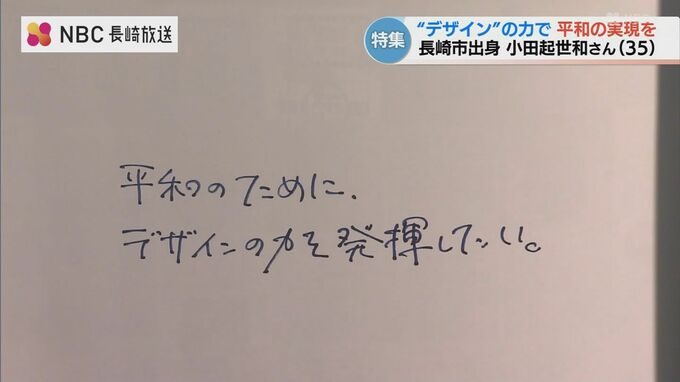 NBC 長崎放送
特集
“デザイン”の力で 平和の実現を
長崎市出身 小田起世和さん(35)
平和のために、
デザインの力を発揮したい。